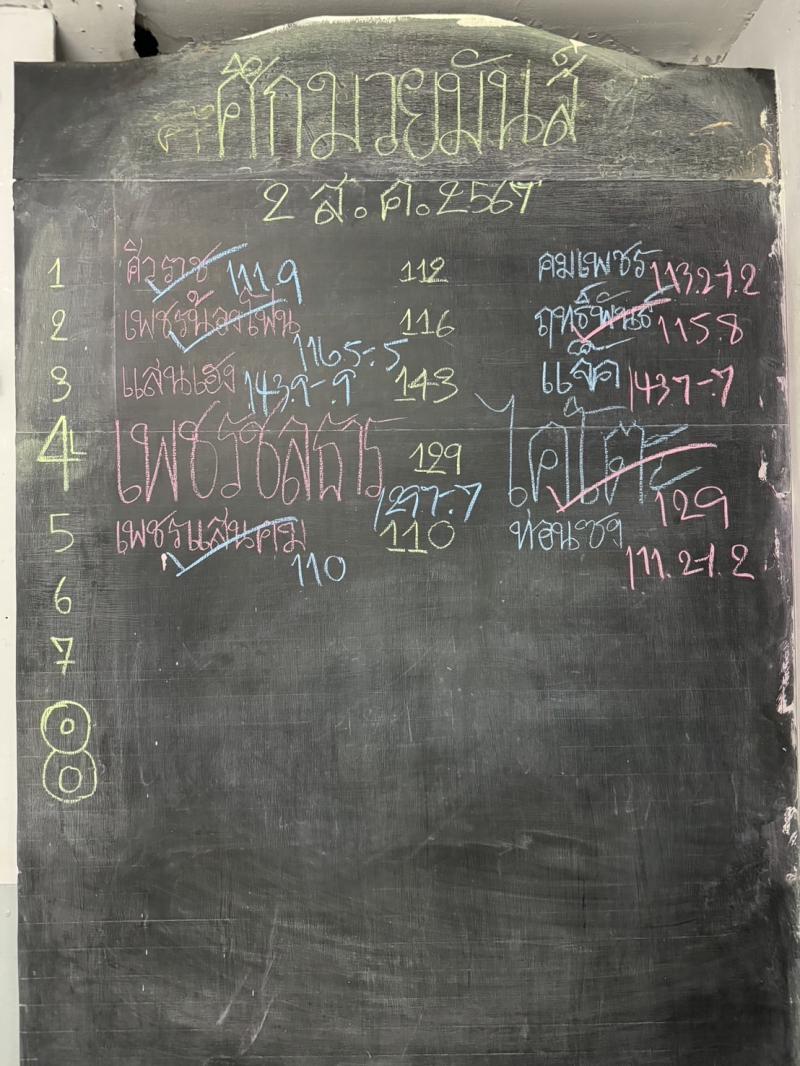 ศึกมวยมันส์
2 ส.ค.2567
1 ศิวราช 111.9 112 คมเพชร 113.2-1.2
2 เพชรน้องโฟน 116.5-.5 116 ฤทธิ์พันธ์ 115.8
3 แสนเฮง 143.9-.9 143 แจ็ค 143.7-.7
4 เพชรชลธาร 129.7-.7 129 ไคโตะ 129
5 เพชรแสนคม 110 110 ท่อนซุง 111.2-1.2
6
7
8